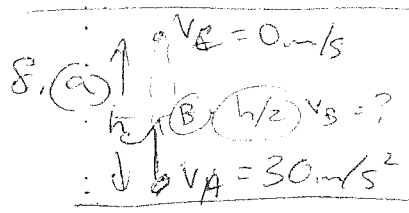 V_C = 0 m/s
8. (a)
h (B) h/2 V_B = ?
V_A = 30 m/s²